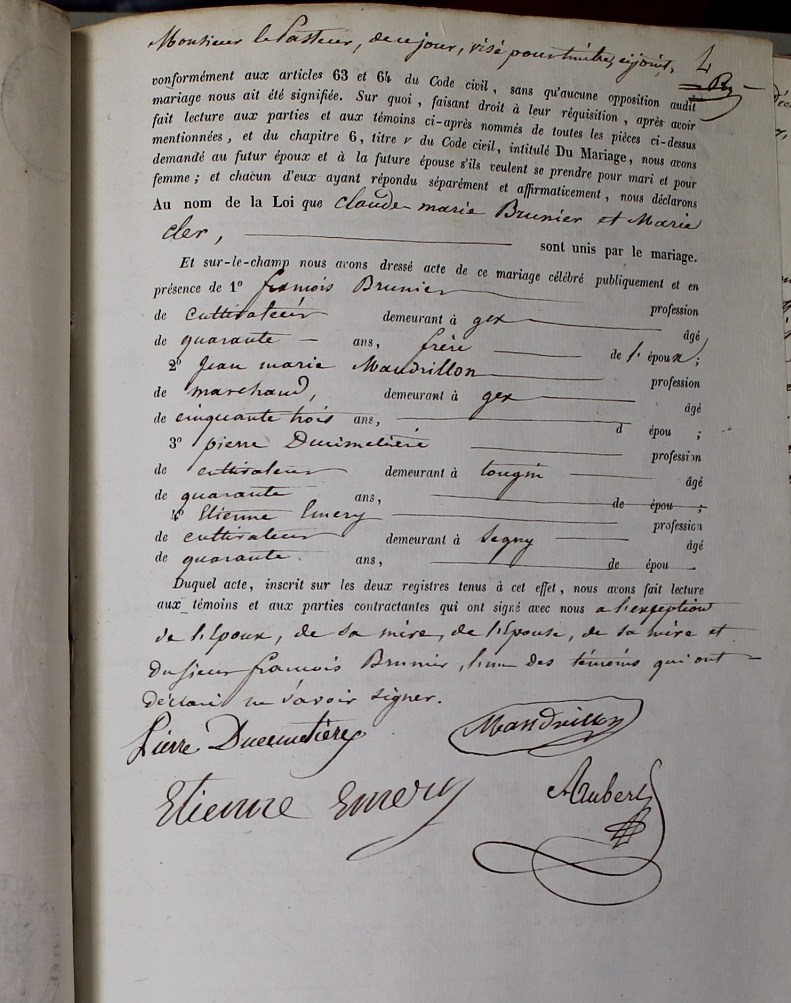 Monsieur le Pasteur, de ce jour, visé pour timbre, cijoint, 4
conformément aux articles 63 et 64 du Code civil, sans qu'aucune opposition audit
mariage nous ait été signifiée. Sur quoi, faisant droit à leur réquisition, après avoir
fait lecture aux parties et aux témoins ci-après nommés de toutes les pièces ci-dessus
mentionnées, et du chapitre 6, titre v du Code cieil, intitulé Du Mariage, nous avons
demandé au futur époux et à la future épouse s'ils veulent se prendre pour mari et pour
femme; et chacun d'eux ayant répondu séparément et affirmativement, nous déclarons
Au nom de la Loi que claude marie Brunier et Marie
cler, sont unis par le mariage.
Et sur-le-champ nous avons dressé acte de ce mariage célébré publiquement et en
présence de 1º francois Brunier profession
de cultivateur demeurant à gex âgé
de quarante ans, frère de l'époux;
2º Jean marie Mandrillon profession
de marchand, demeurant à gex âgé
de cinquante trois ans, d épou ;
3º pierre Ducimetière profession
de cultivateur demeurant à tougin âgé
de quarante ans, de épou ;
4º Etienne Emery profession
de cultivateur demeurant à Segny âgé
de quarante. ans, de épou .
Duquel acte, inscrit sur les deux registres tenus à cet effet, nous avons fait lecture
aux témoins et aux parties contractantes qui ont signé avec nous a l'exception
de l'Epoux, de sa mère, de l'Epouse, de sa mère et
du sieur francois Brunier, l'un des témoins qui ont
déclaré ne savoir signer.
Pierre Ducimetière Mandrillon
Etienne Emery Aubert